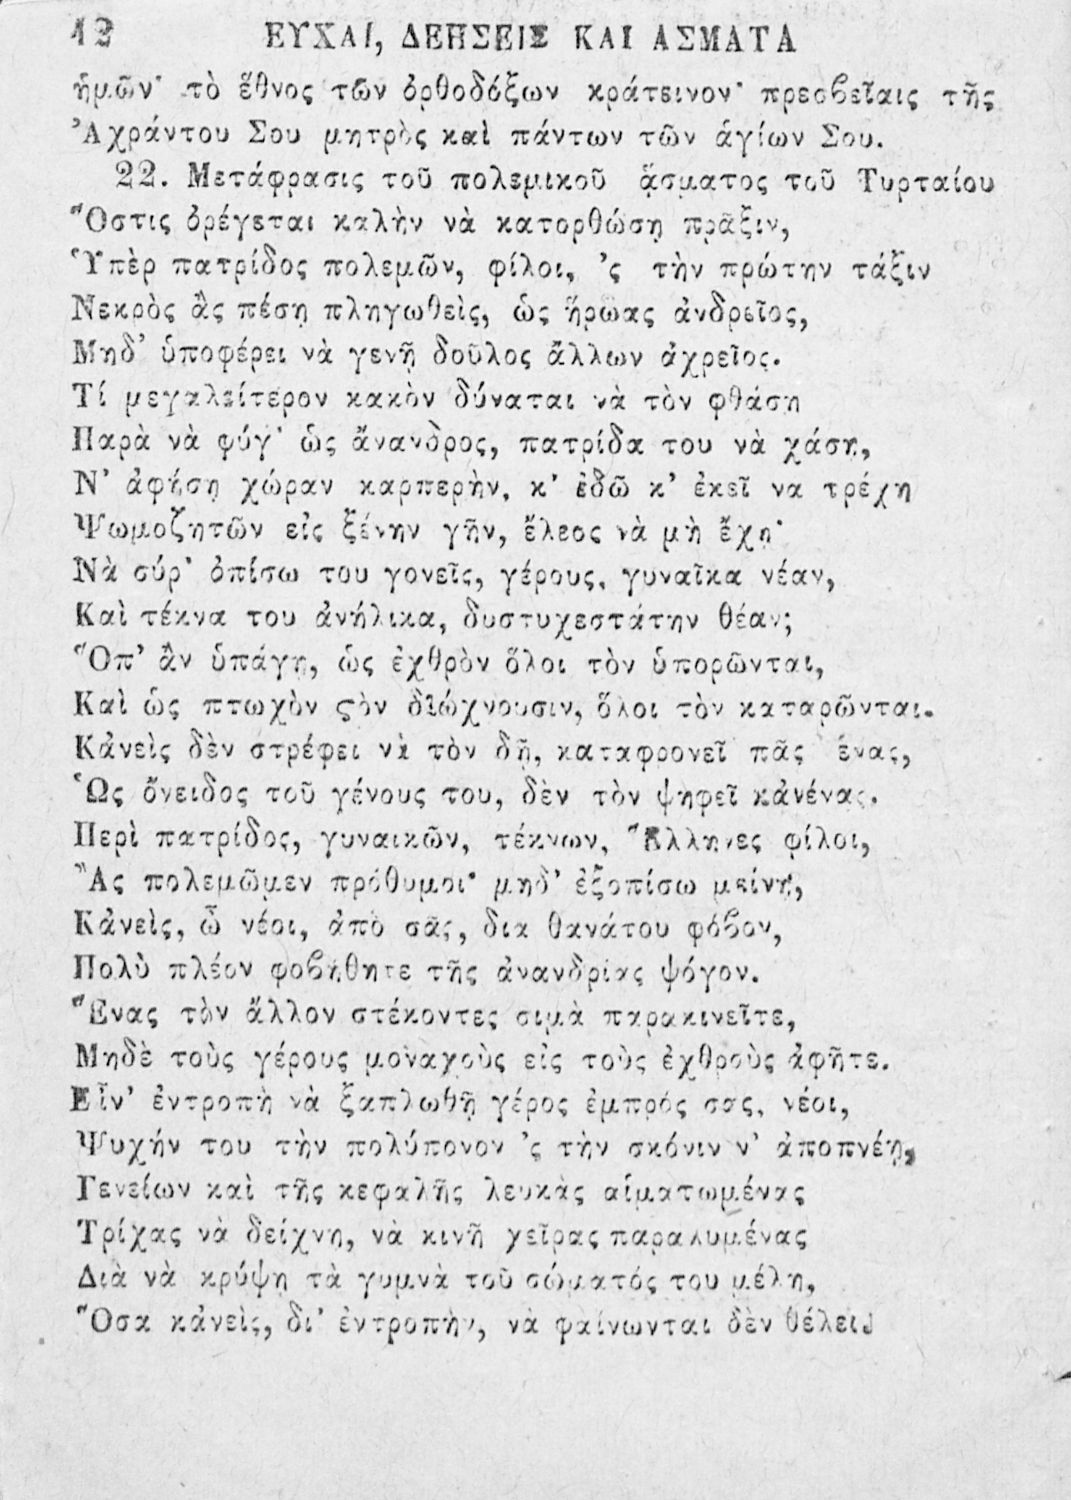 12 ΕΥΧΑΙ, ΔΕΗΣΕΙΣ ΚΑΙ ΑΣΜΑΤΑ
ἡμῶν· τὸ ἔθνος τῶν ὀρθοδόξων κράτεινον· πρεσβεῖαις τῆς
Ἀχράντου Σου μητρὸς καὶ πάντων τῶν ἁγίων Σου.
22. Μετάφρασις τοῦ πολεμικοῦ ᾄσματος τοῦ Τυρταίου
Ὅστις ὀρέγεται καλὴν νὰ κατορθώσῃ πρᾶξιν,
Ὑπὲρ πατρίδος πολεμῶν, φίλοι, 'ς τὴν πρώτην τάξιν
Νεκρὸς ἂς πέσῃ πληγωθεὶς, ὡς ἥρωας ἀνδρεῖος,
Μηδ' ὑποφέρει νὰ γενῇ δοῦλος ἄλλων ἀχρεῖος.
Τί μεγαλείτερον κακὸν δύναται νὰ τὸν φθάσῃ
Παρὰ νὰ φύγ' ὡς ἄνανδρος, πατρίδα του νὰ χάσῃ,
Ν' ἀφήσῃ χώραν καρπερὴν, κ' ἐδῶ κ' ἐκεῖ να τρέχῃ
Ψωμοζητῶν εἰς ξένην γῆν, ἔλεος νὰ μὴ ἔχῃ·
Νὰ σύρ' ὀπίσω του γονεῖς, γέρους, γυναῖκα νέαν,
Καὶ τέκνα του ἀνήλικα, δυστυχεστάτην θέαν;
Ὅπ' ἂν ὑπάγῃ, ὡς ἐχθρὸν ὅλοι τὸν ὑπορῶνται,
Καὶ ὡς πτωχὸν ςὸν διώχνουσιν, ὅλοι τὸν καταρῶνται.
Κἀνεὶς δὲν στρέφει νὰ τὸν δῇ, καταφρονεῖ πᾶς ἕνας,
Ὡς ὄνειδος τοῦ γένους του, δὲν τὸν ψηφεῖ κἀνένας.
Περὶ πατρίδος, γυναικῶν, τέκνων, Ἕλληνες φίλοι,
Ἂς πολεμῶμεν πρόθυμοι· μηδ' ἐξοπίσω μείνῃ,
Κἀνεὶς, ὦ νέοι, ἀπὸ σᾶς, δια θανάτου φόβον,
Πολὺ πλέον φοβήθητε τῆς ἀνανδρίας ψόγον.
Ἕνας τὸν ἄλλον στέκοντες σιμὰ παρακινεῖτε,
Μηδὲ τοὺς γέρους μοναχοὺς εἰς τοὺς ἐχθροὺς ἀφῆτε.
Εἶν' ἐντροπὴ νὰ ξαπλωθῇ γέρος ἐμπρός σας, νέοι,
Ψυχήν του τὴν πολύπονον 'ς τὴν σκόνιν ν' ἀποπνέῃ,
Γενείων καὶ τῆς κεφαλῆς λευκὰς αἱματωμένας
Τρίχας νὰ δείχνῃ, νὰ κινῇ χεῖρας παραλυμένας
Διὰ νὰ κρύψῃ τὰ γυμνὰ τοῦ σώματός του μέλη,
Ὅσα κἀνεὶς, δι' ἐντροπὴν, νὰ φαίνωνται δὲν θέλει.